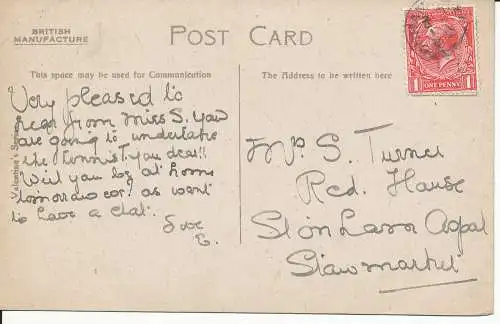 BRITISH
MANUFACTURE
POST CARD
This space may be used for Communication
The Address to be written here
ONE PENNY
1 1
Valentine's Series
Very pleased to
hear from Miss S. you
are going to undertake
the Tennis T. you dear!!
Will you be at home
tomorrow eve: as want
to have a chat.
Love
E.
Mrs S. Turner
Red House
Stowmarket